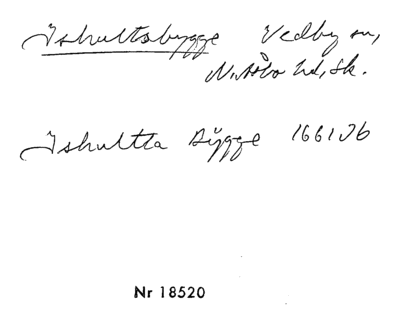 Ishultsbygge Vedby sn,
N. Åsbo hd, Sk.
Ishultta Bÿgge 1661 Jb
Nr 18520